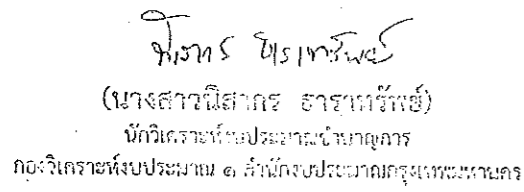 (นางสาวนิสากร ธาราทรัพย์)
นักวิเคราะห์งบประมาณชำนาญการ
กองวิเคราะห์งบประมาณ ๑ สำนักงบประมาณกรุงเทพมหานคร